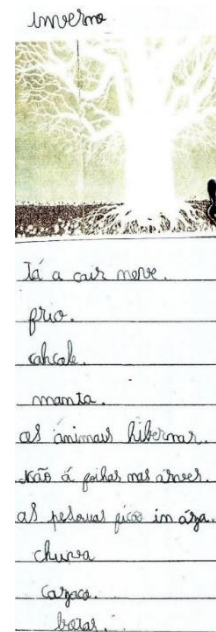 inverno
Tá a cair neve.
frio.
cahcale.
manta.
as ánimais hibernar.
não á foihas nas árves.
as pesouas fico im cáza.
chuva
cazaco.
botas.